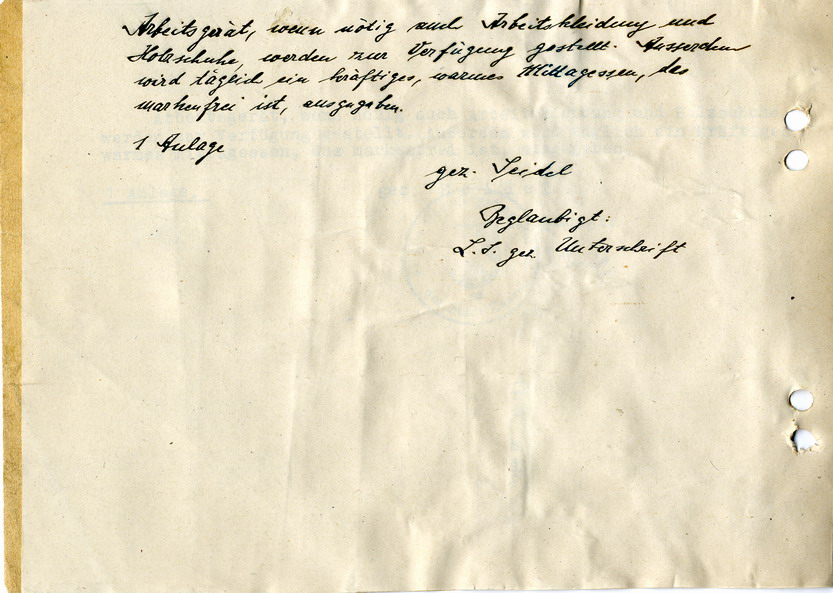 Arbeitsgerät, wenn nötig auch Arbeitskleidung und
Holzschuhe, werden zur Verfügung gestellt. Ausserdem
wird täglich ein kräftiges, warmes Mittagessen, das
markenfrei ist, ausgegeben.
1 Anlage
gez. Seidel
Beglaubigt:
L.S. gez. Unterschrift